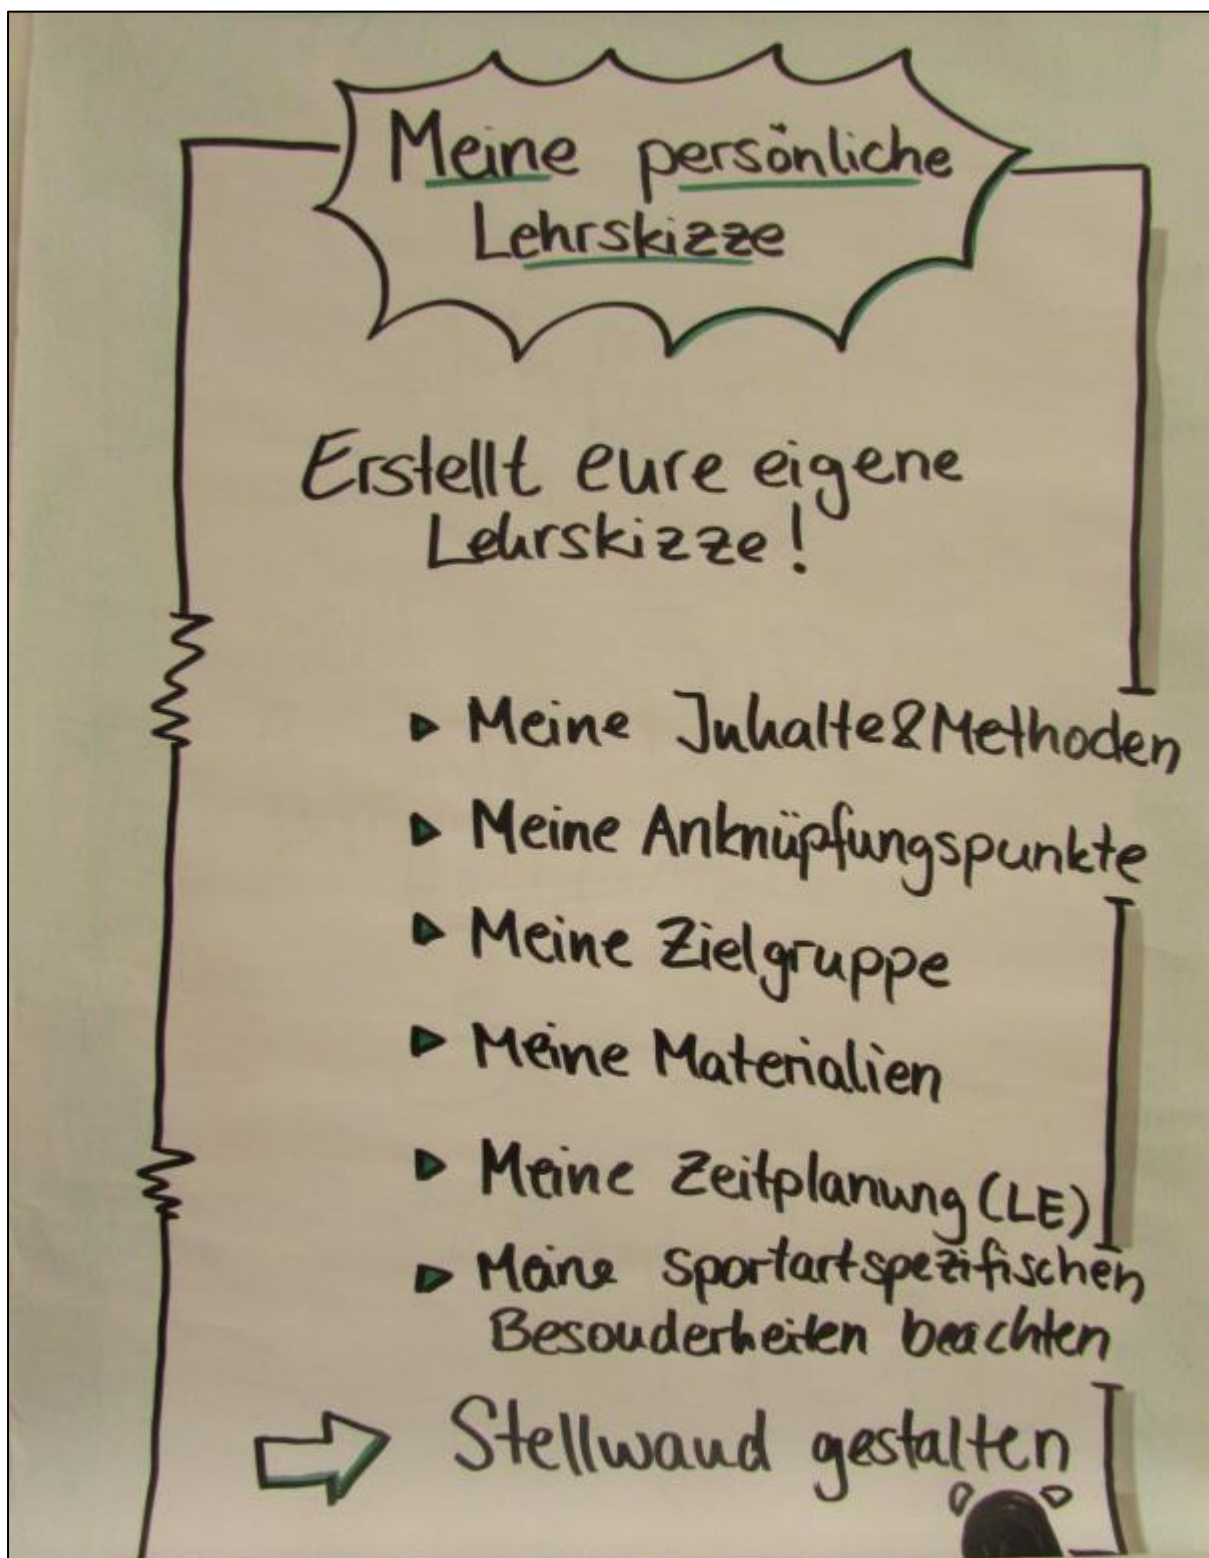 Meine persönliche
Lehrskizze
Erstellt eure eigene
Lehrskizze!
Meine Inhalte & Methoden
Meine Anknüpfungspunkte
Meine Zielgruppe
Meine Materialien
Meine Zeitplanung (LE)
Meine sportartspezifischen
Besonderheiten beachten
Stellwand gestalten